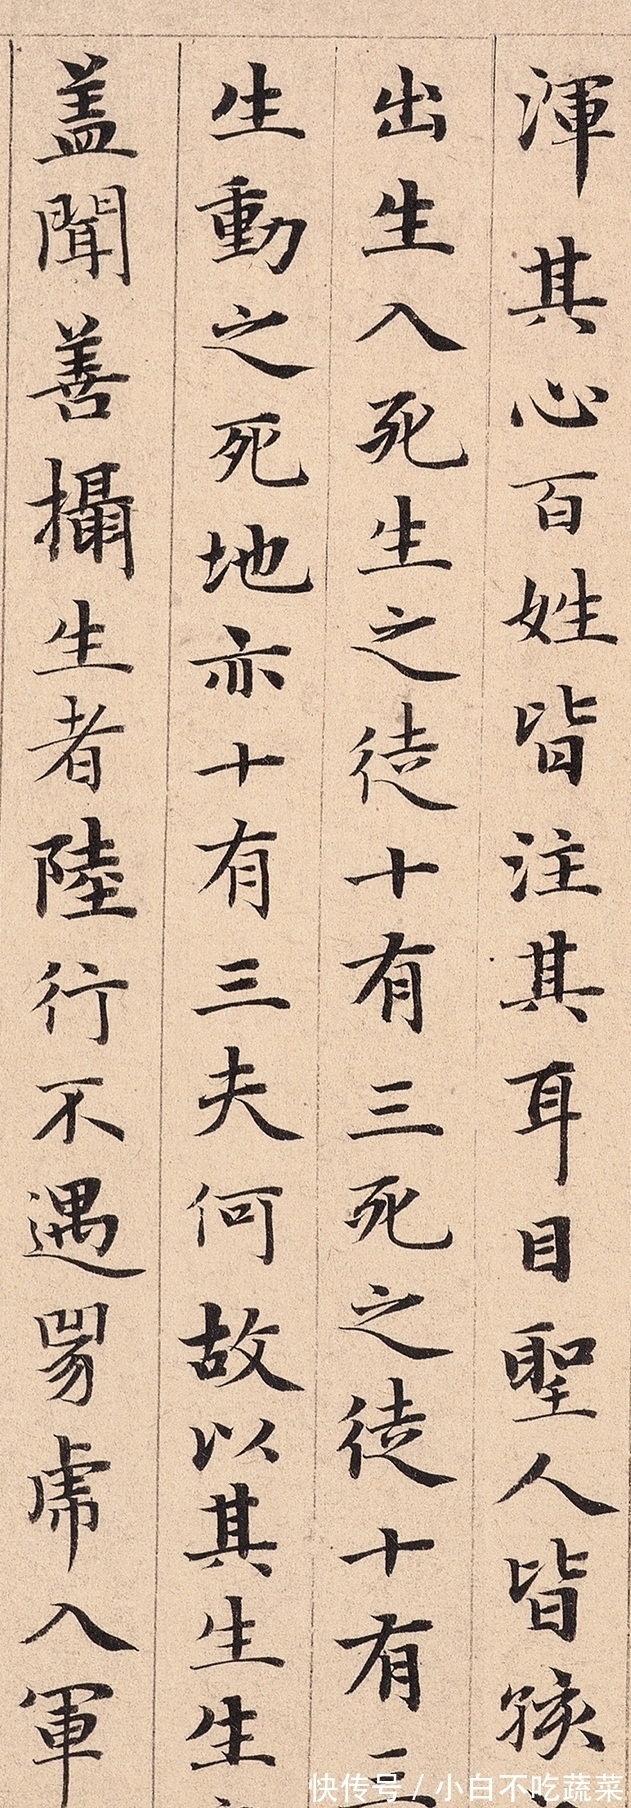 渾其心百姓皆注其耳目聖人皆孩
出生入死生之徒十有三死之徒十有三
生動之死地亦十有三夫何故以其生生
蓋聞善攝生者陸行不遇兕虎入軍
快传号 / 小白不吃蔬菜